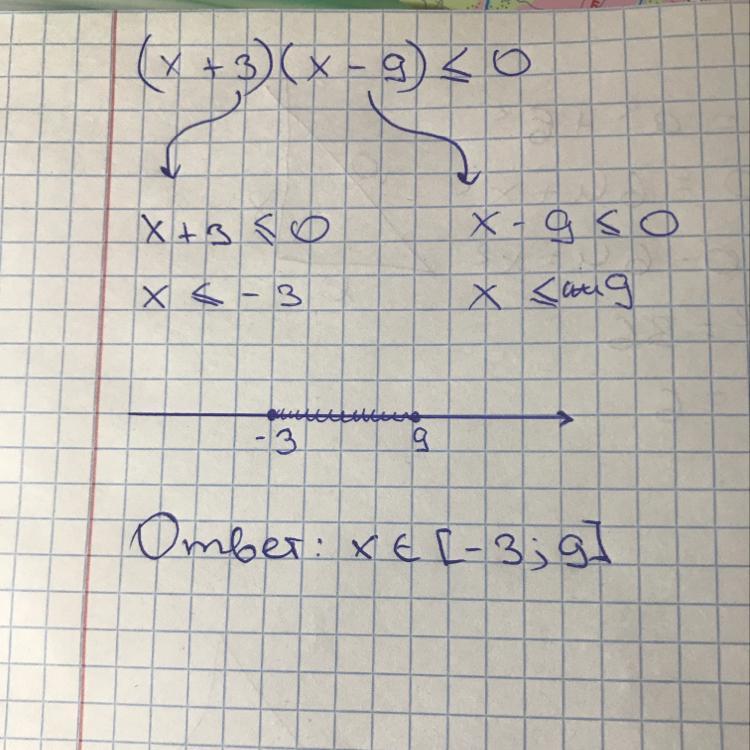 (x + 3)(x - 9) ≤ 0
x + 3 ≤ 0 x - 9 ≤ 0
x ≤ - 3 x ≤ 9
-3 9
Ответ: x ∈ [-3; 9]